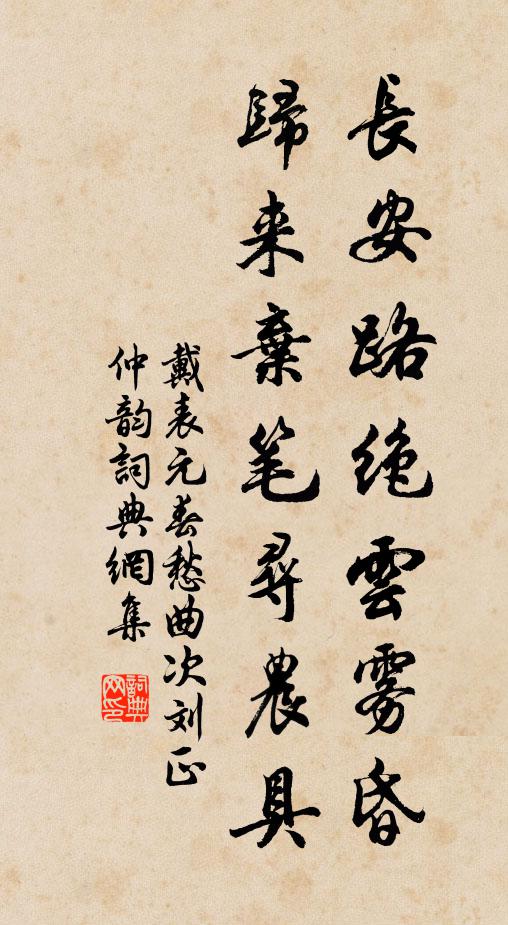 長安路绝雲雾昏
歸来棄笔尋農具
戴表元春愁曲次刘正
仲韵詞典網集
詞典
网印